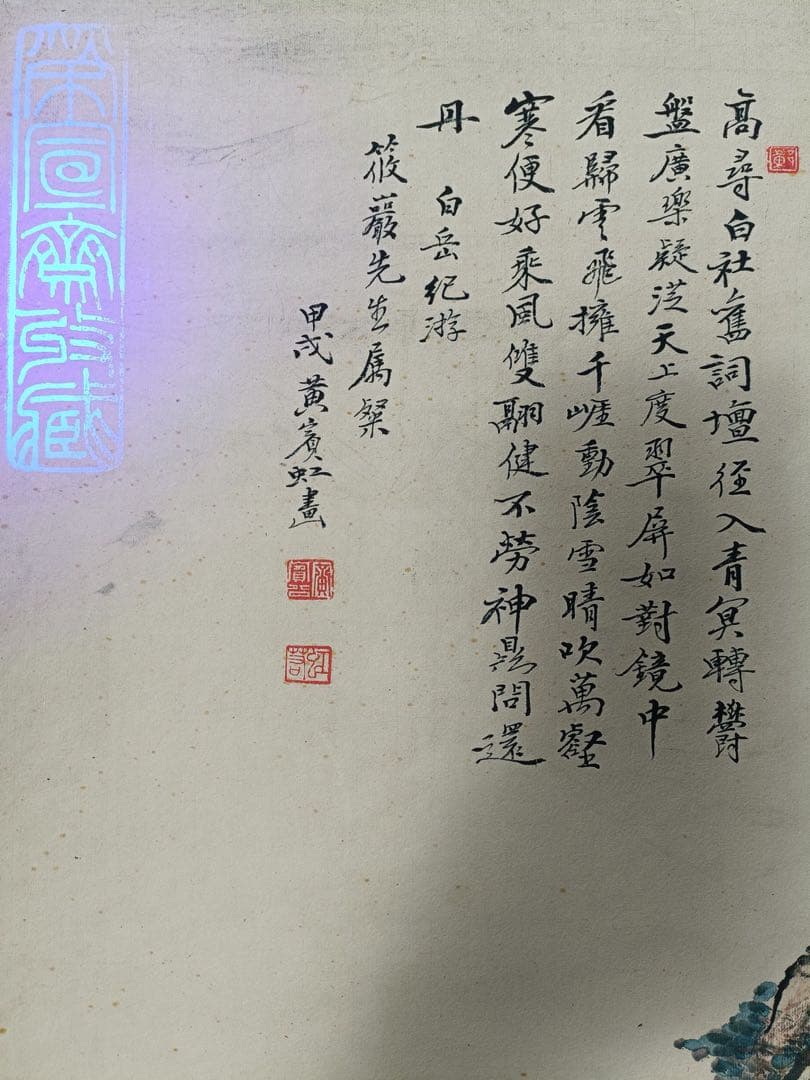 高尋白社舊詞壇徑入青冥轉鬱
盤廣樂疑從天上度翠屏如對鏡中
看歸雲飛擁千崖動陰雪晴吹萬壑
寒便好乘風雙翮健不勞神鼎問還
丹 白岳紀游
筱巖先生属粲
甲戌黃賓虹畫
榮宣齋收藏